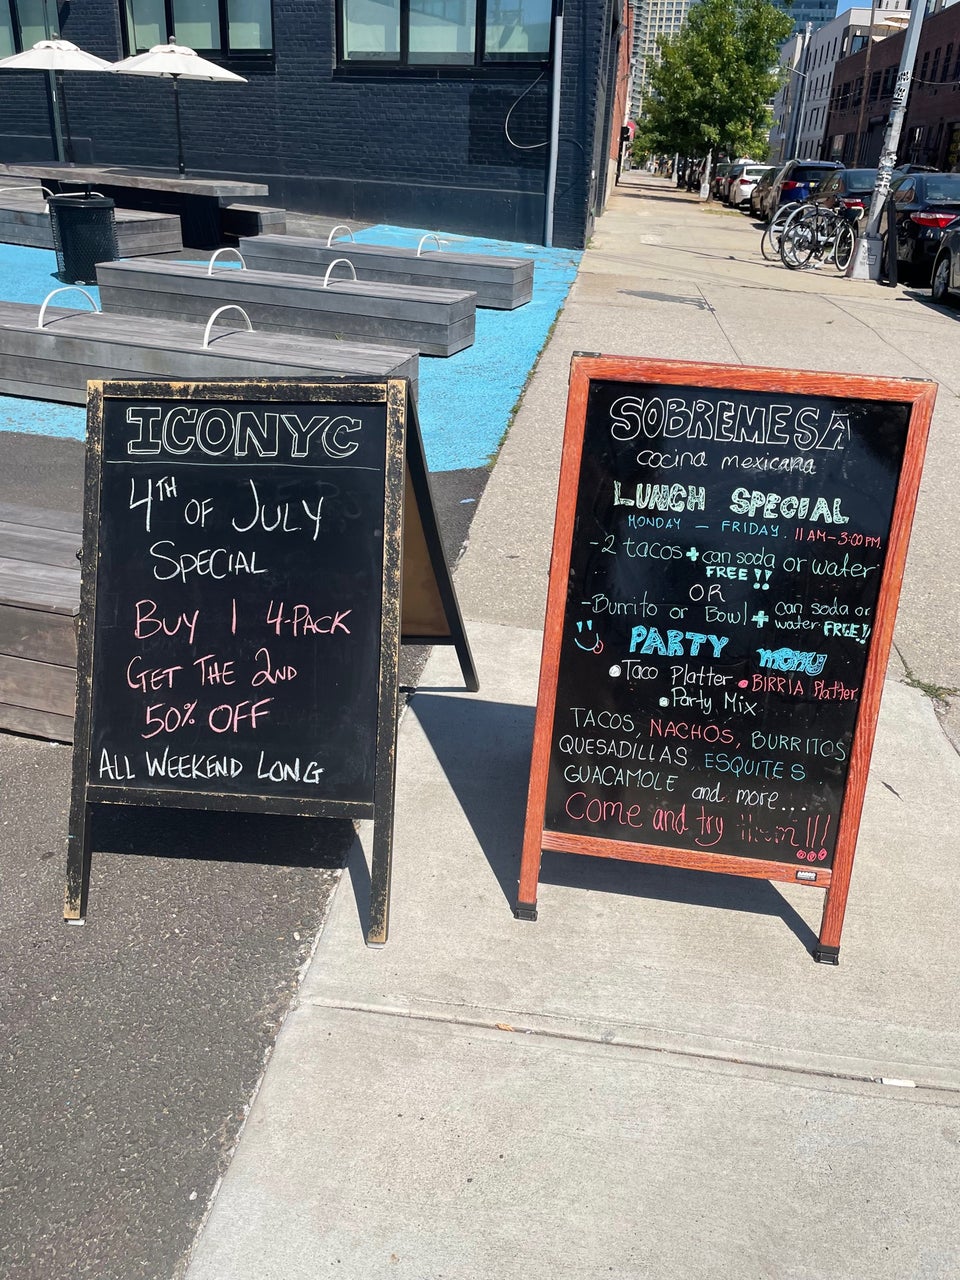 ICONYC
4TH OF JULY
SPECIAL
BUY 1 4-PACK
GET THE 2ND
50% OFF
ALL WEEKEND LONG
SOBREMESA
cocina mexicana
LUNCH SPECIAL
MONDAY - FRIDAY. 11 AM-3:00 PM.
-2 tacos + can soda or water
FREE!!
OR
-Burrito or Bowl + can soda or
water FREE!!
PARTY menu
Taco Platter BIRRIA Platter
Party Mix
TACOS, NACHOS, BURRITOS
QUESADILLAS, ESQUITES
GUACAMOLE and more...
Come and try them!!!